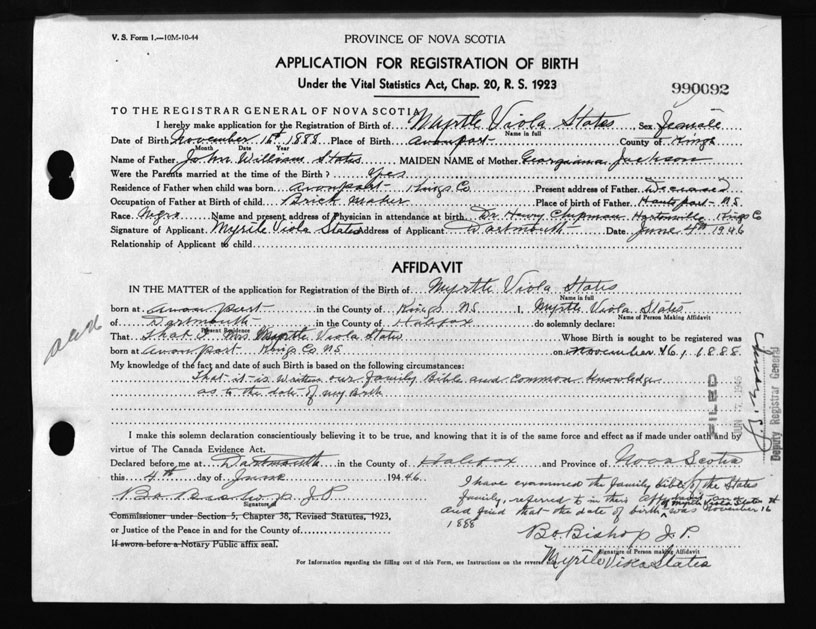 V. S. Form 1.—10M-10-44
PROVINCE OF NOVA SCOTIA
APPLICATION FOR REGISTRATION OF BIRTH
Under the Vital Statistics Act, Chap. 20, R. S. 1923
990092
TO THE REGISTRAR GENERAL OF NOVA SCOTIA
I hereby make application for the Registration of Birth of Myrtle Viola States Sex Female
Name in full
Date of Birth November 16th 1888 Place of Birth Avonport County of Kings
Month Date Year
Name of Father John William States MAIDEN NAME of Mother Georgianna Jackson
Were the Parents married at the time of the Birth? Yes
Residence of Father when child was born Avonport Kings Co. Present address of Father Deceased
Occupation of Father at Birth of child Brick Maker Place of birth of Father Hantsport N.S.
Race Negro Name and present address of Physician in attendance at birth Dr Henry Chipman Kings Co
Signature of Applicant Myrtle Viola States Address of Applicant Dartmouth Date June 4th 1946
Relationship of Applicant to child
AFFIDAVIT
IN THE MATTER of the application for Registration of the Birth of Myrtle Viola States
Name in full
born at Avonport in the County of Kings N.S. I, Myrtle Viola States
Name of Person Making Affidavit
of Dartmouth in the County of Halifax do solemnly declare:
Present Residence
That That I Mrs Myrtle Viola States Whose Birth is sought to be registered was
born at Avonport Kings Co. N.S. on November 16, 1888.
My knowledge of the fact and date of such Birth is based on the following circumstances:
That it is written our family Bible and common knowledge
as to the date of my Birth
FILED
Deputy Registrar General
I make this solemn declaration conscientiously believing it to be true, and knowing that it is of the same force and effect as if made under oath and by
virtue of The Canada Evidence Act.
Declared before me at Dartmouth in the County of Halifax and Province of Nova Scotia
this 4th day of June 1946
I have examined the family bible of the States
family, referred to in this of Myrtle Viola States
and find that the date of birth was November 16
1888
B.O. Bishop J.P.
Signature of
Commissioner under Section 5, Chapter 38, Revised Statutes, 1923,
or Justice of the Peace in and for the County of
If sworn before a Notary Public affix seal.
B.O. Bishop J.P.
Signature of Person making Affidavit
Myrtle Viola States
For Information regarding the filling out of this Form, see Instructions on the reverse